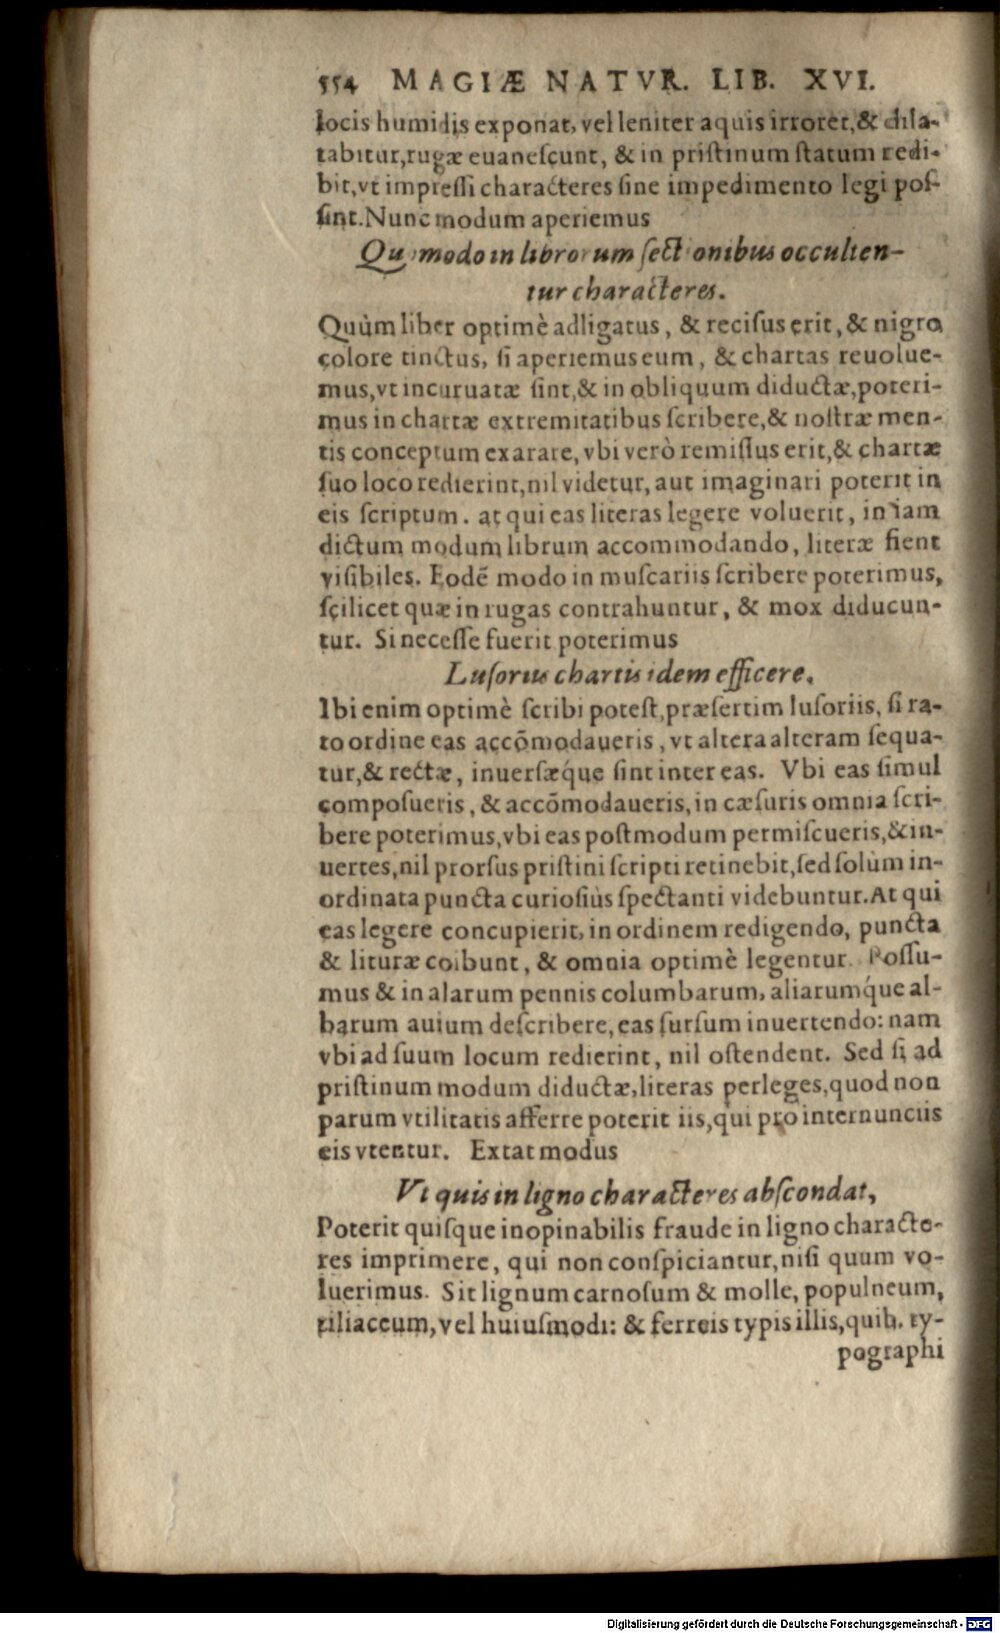 554 MAGIÆ NATVR. LIB. XVI.
locis humidis exponat, vel leniter aquis irroret,& dila-
tabitur,rugæ euanescunt, & in pristinum statum redi-
bit,vt impressi characteres sine impedimento legi pos-
sint.Nunc modum aperiemus
Quomodo in librorum sectionibus occulten-
tur characteres.
Quùm liber optimè adligatus, & recisus erit, & nigro
colore tinctus, si aperiemus eum, & chartas reuolue-
mus,vt incuruatæ sint,& in obliquum diductæ,poteri-
mus in chartæ extremitatibus scribere,& nostræ men-
tis conceptum exarare, vbi verò remissus erit,& chartæ
suo loco redierint,nil videtur, aut imaginari poterit in
eis scriptum. at qui eas literas legere voluerit, in iam
dictum modum librum accommodando, literæ fient
visibiles. Eodē modo in muscariis scribere poterimus,
scilicet quæ in rugas contrahuntur, & mox diducun-
tur. Si necesse fuerit poterimus
Lusoriis chartis idem efficere.
Ibi enim optimè scribi potest,præsertim lusoriis, si ra-
to ordine eas accōmodaueris, vt altera alteram sequa-
tur,& rectæ, inuersæq́ue sint inter eas. Vbi eas simul
composueris, & accōmodaueris,in cæsuris omnia scri-
bere poterimus,vbi eas postmodum permiscueris,& in-
uertes,nil prorsus pristini scripti retinebit,sed solùm in-
ordinata puncta curiosiùs spectanti videbuntur.At qui
eas legere concupierit, in ordinem redigendo, puncta
& lituræ coibunt, & omnia optimè legentur. Possu-
mus & in alarum pennis columbarum, aliarumq́ue al-
barum auium describere, eas sursum inuertendo: nam
vbi ad suum locum redierint, nil ostendent. Sed si ad
pristinum modum diductæ,literas perleges,quod non
parum vtilitatis afferre poterit iis,qui pro internunciis
eis vtentur. Extat modus
Vt quis in ligno characteres abscondat,
Poterit quisque inopinabilis fraude in ligno characte-
res imprimere, qui non conspiciantur,nisi quum vo-
luerimus. Sit lignum carnosum & molle, populneum,
tiliaceum, vel huiusmodi: & ferreis typis illis,quib. ty-
pographi
Digitalisierung gefördert durch die Deutsche Forschungsgemeinschaft - DFG